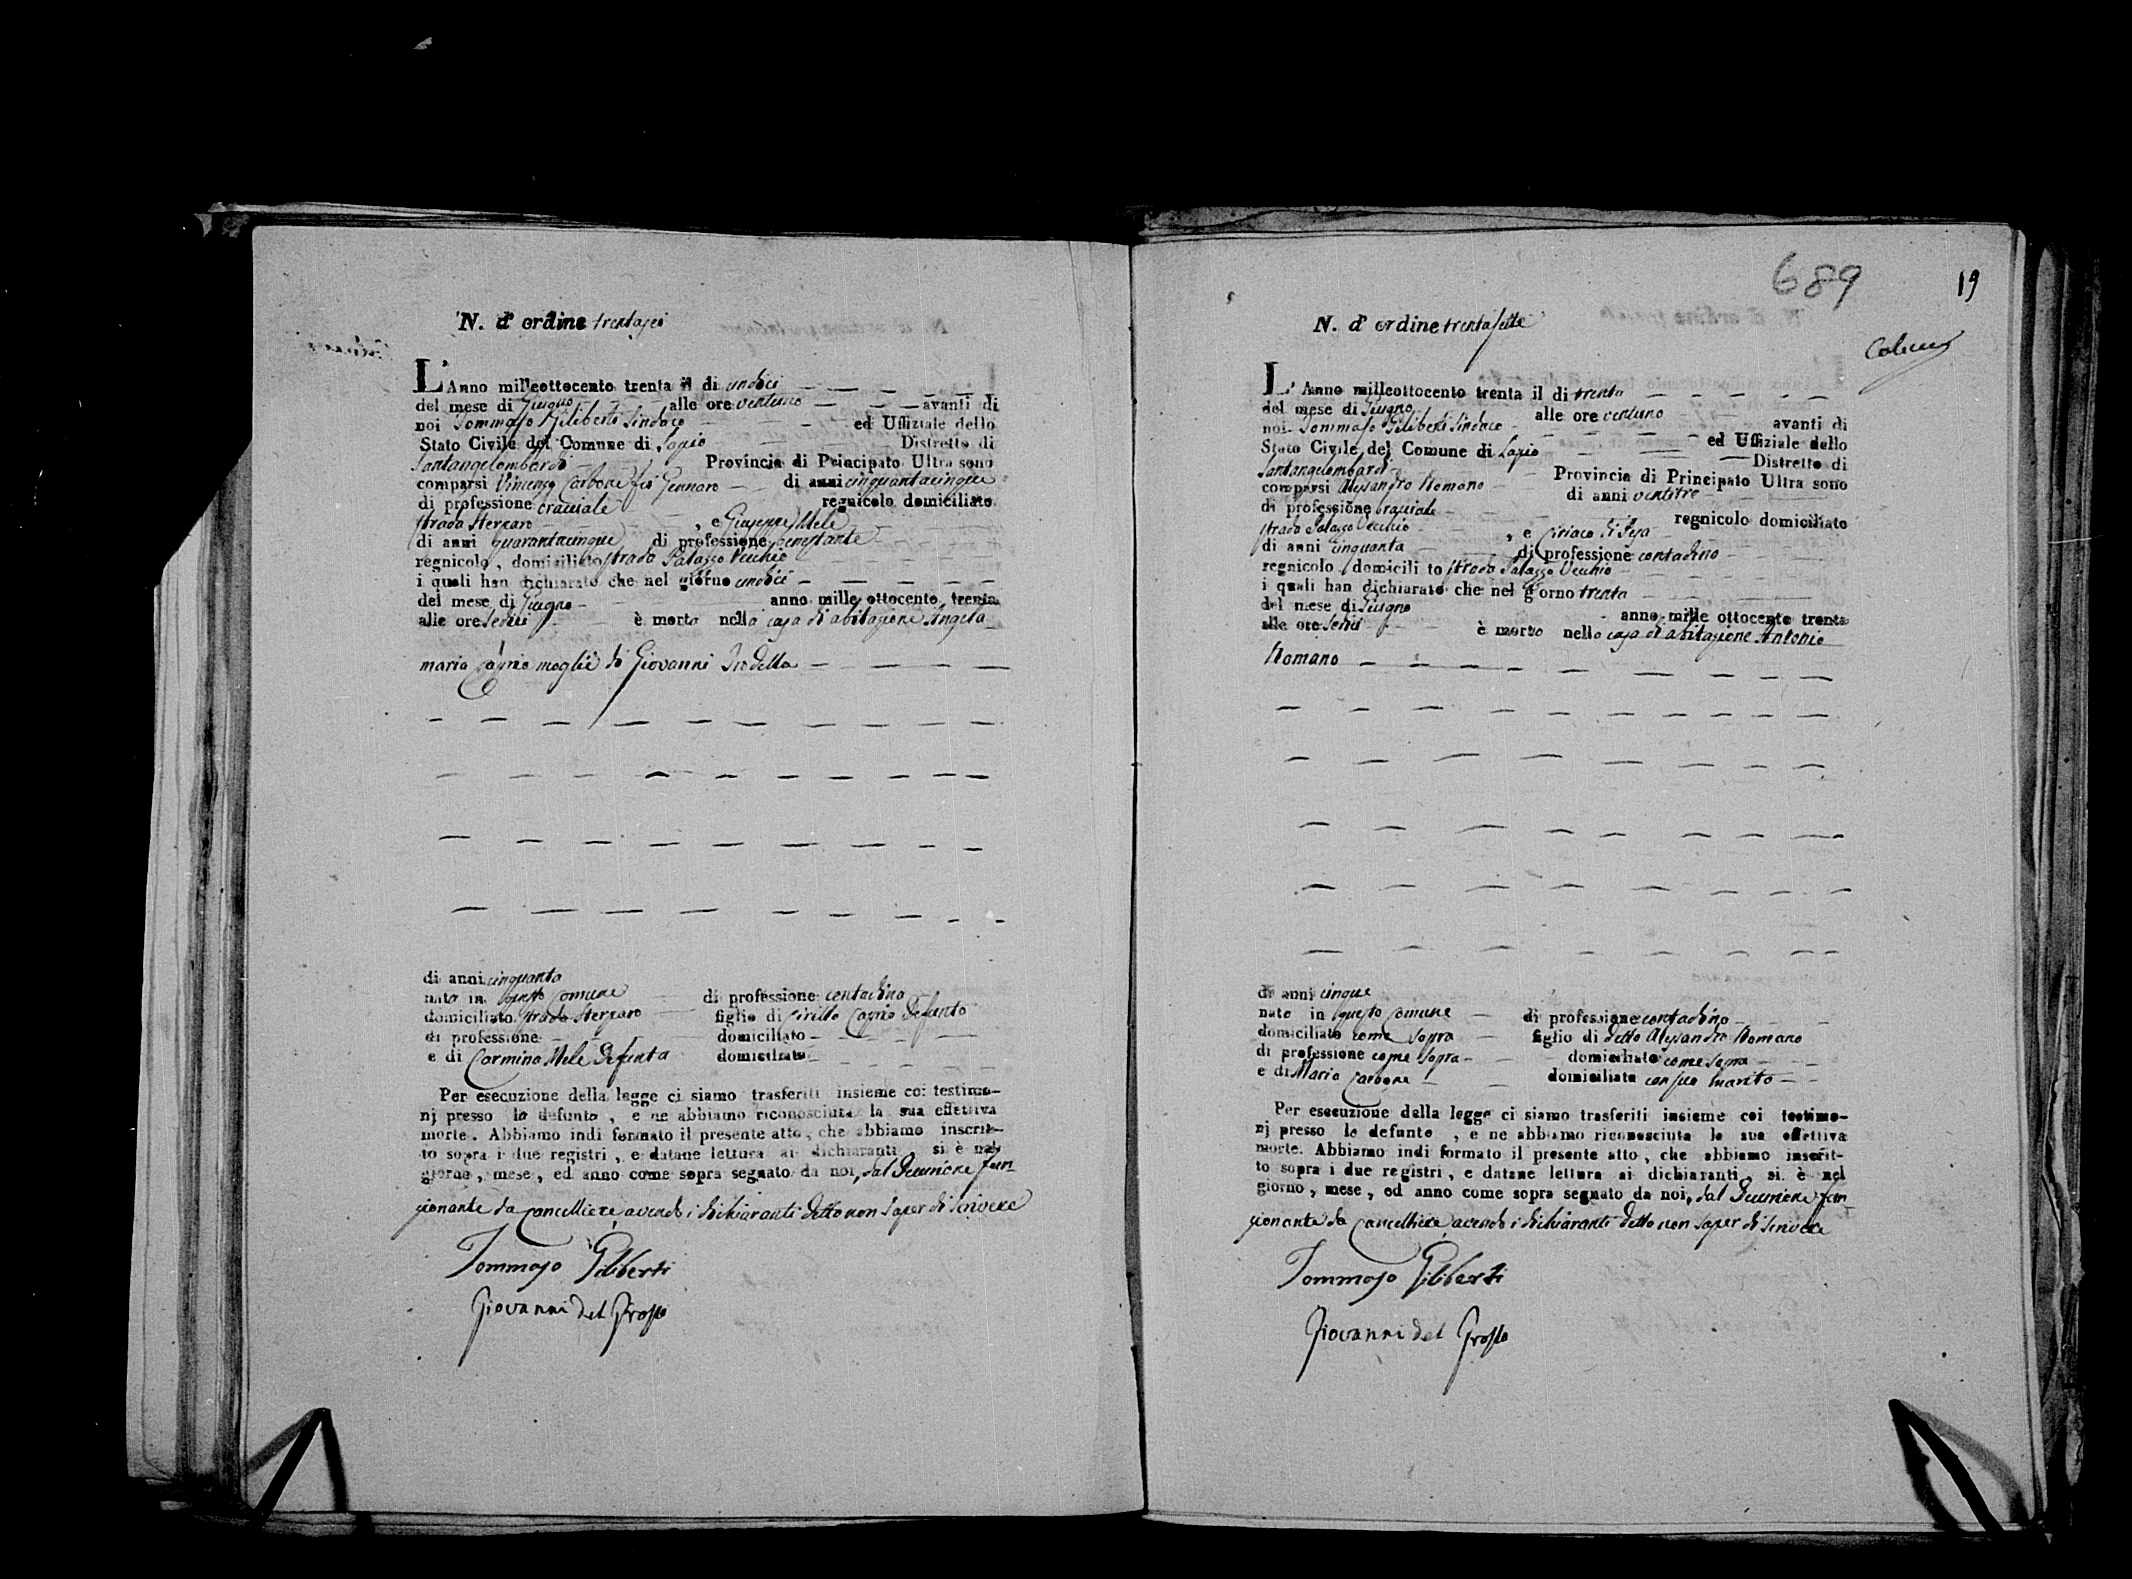 N. d' ordine trentasei
L'Anno milleottocento trenta il di undici
del mese di Giugno alle ore ventuno avanti di
noi Tommaso Giliberti Sindaco ed Uffiziale dello
Stato Civile del Comune di Lapio Distretto di
Santangelombardi Provincia di Principato Ultra sono
comparsi Vincenzo Carbone fu Gennaro di anni cinquantacinque
di professione bracciale regnicolo domiciliato
strada Sterzaro , e Giuseppe Mele
di anni quarantacinque di professione
regnicolo, domiciliato strada Palazzo Vecchio
i quali han dichiarato che nel giorno undici
del mese di Giugno anno mille ottocento trenta
alle ore sedici è morta nella casa di abitazione Angela
maria Caprio moglie di Giovanni
di anni cinquanta
nato in questo Comune di professione contadina
domiciliato strada Sterzaro figlio di Cirillo Caprio defunto
di professione domiciliato
e di Carmina Mele defunta domiciliata
Per esecuzione della legge ci siamo trasferiti insieme coi testimo-
nj presso la defunta, e ne abbiamo riconosciuta la sua effettiva
morte. Abbiamo indi formato il presente atto, che abbiamo inscrit-
to sopra i due registri, e datane lettura ai dichiaranti si è nel
giorno, mese, ed anno come sopra segnato da noi, dal Decurione fun-
zionante da Cancelliere avendo i dichiaranti detto non saper di scrivere
Tommaso Giliberti
Giovanni del Grosso
689
19
N. d' ordine trentasette
L' Anno milleottocento trenta il di trenta
del mese di Giugno alle ore ventuno avanti di
noi Tommaso Giliberti Sindaco ed Uffiziale dello
Stato Civile del Comune di Lapio Distretto di
Santangelombardi Provincia di Principato Ultra sono
comparsi Alesandro Romano di anni ventitre
di professione bracciale regnicolo domiciliato
strada Palazzo Vecchio , e Ciriaco di Iesa
di anni cinquanta di professione contadino
regnicolo domicili to strada Palazzo Vecchio
i quali han dichiarato che nel giorno trenta
del mese di Giugno anno mille ottocento trenta
alle ore sedici è morto nella casa di abitazione Antonio
Romano
di anni cinque
nato in questo Comune di professione contadino
domiciliato come sopra figlio di detto Alesandro Romano
di professione come sopra domiciliato come sopra
e di Maria Carbone domiciliata con suo marito
Per esecuzione della legge ci siamo trasferiti insieme coi testimo-
nj presso lo defunto , e ne abbiamo riconosciuta la sua effettiva
morte. Abbiamo indi formato il presente atto, che abbiamo inscrit-
to sopra i due registri, e datane lettura ai dichiaranti, si è nel
giorno, mese, ed anno come sopra segnato da noi, dal Decurione fun-
zionante da Cancelliere avendo i dichiaranti detto non saper di scrivere
Tommaso Giliberti
Giovanni del Grosso